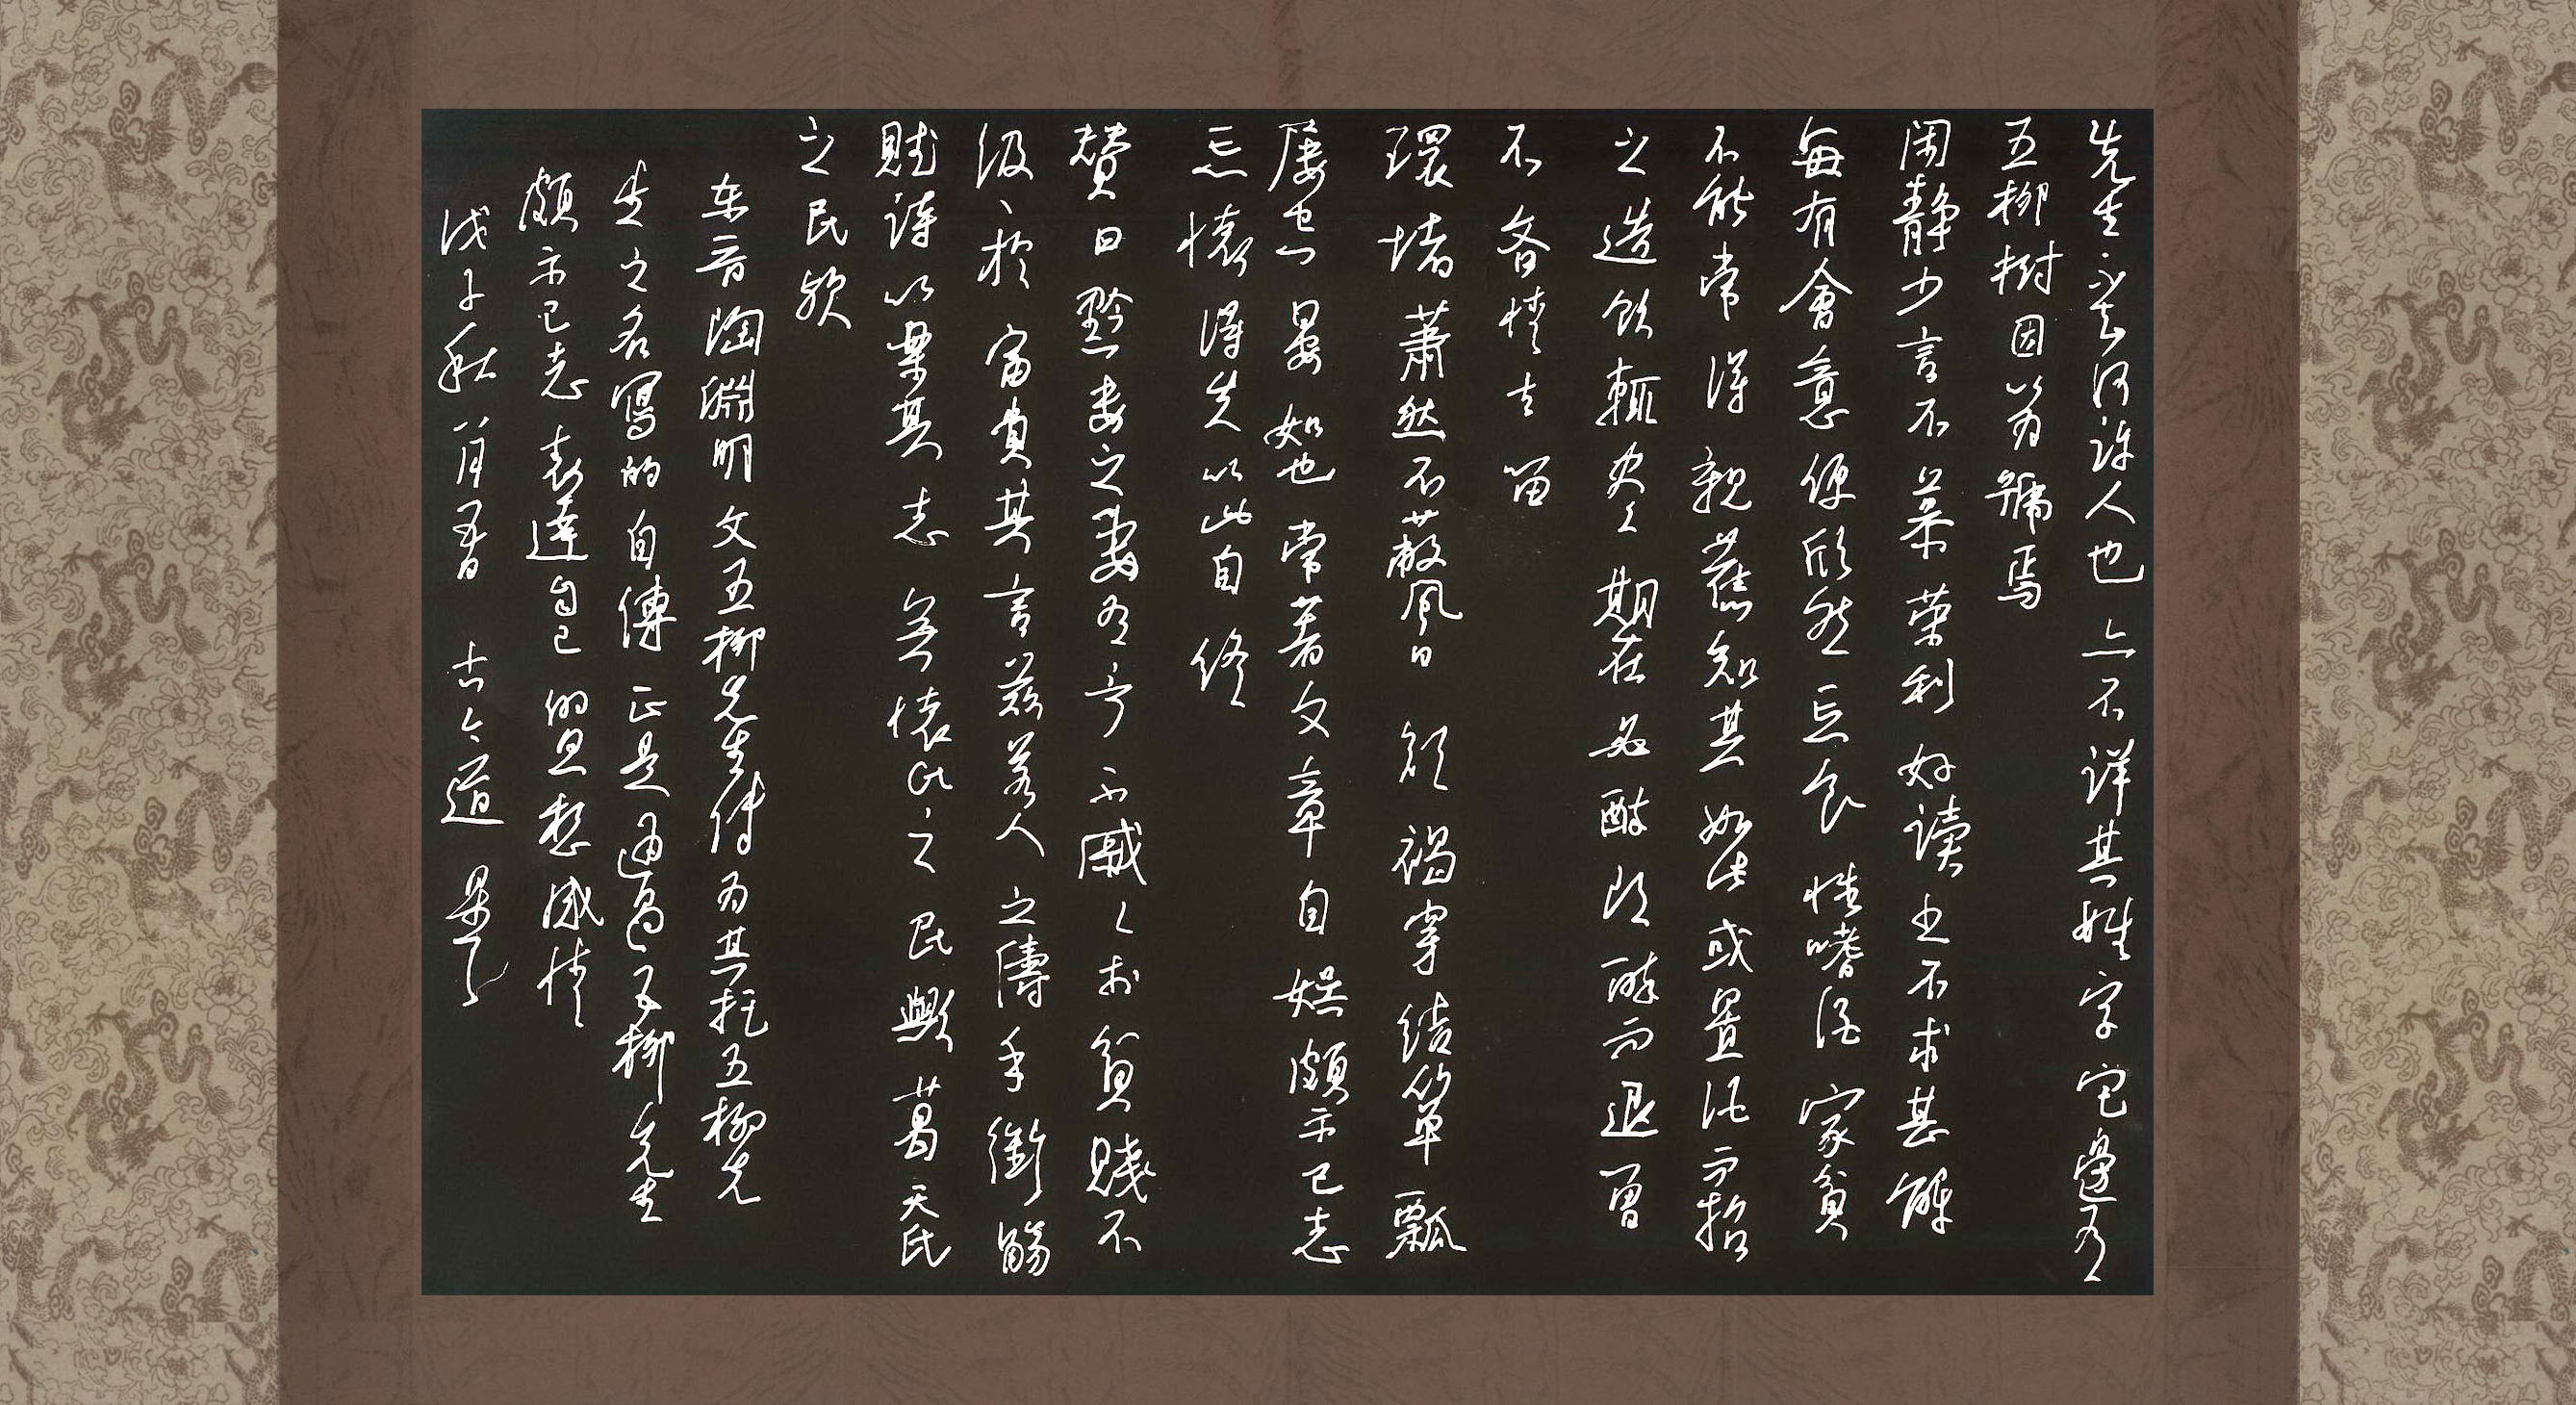 先生不知何許人也亦不詳其姓字宅邊有
五柳樹因以為號焉
闲静少言不慕荣利好读书不求甚解
每有會意便欣然忘食性嗜酒家貧
不能常得親舊知其如此或置酒而招
之造飲輒盡期在必醉既醉而退曾
不吝情去留
環堵蕭然不蔽風日短褐穿結箪瓢
屢空晏如也常著文章自娱頗示己志
忘懷得失以此自終
贊曰黔婁之妻有言不戚々於貧賤不
汲々於富貴其言茲若人之儔乎銜觴
賦詩以樂其志無懷氏之民歟葛天氏
之民歟
东晋陶淵明文五柳先生传为其托五柳先
生之名寫的自傳正是通過五柳先生
頗示己志表達自己的思想感情
戊子秋月 古今道